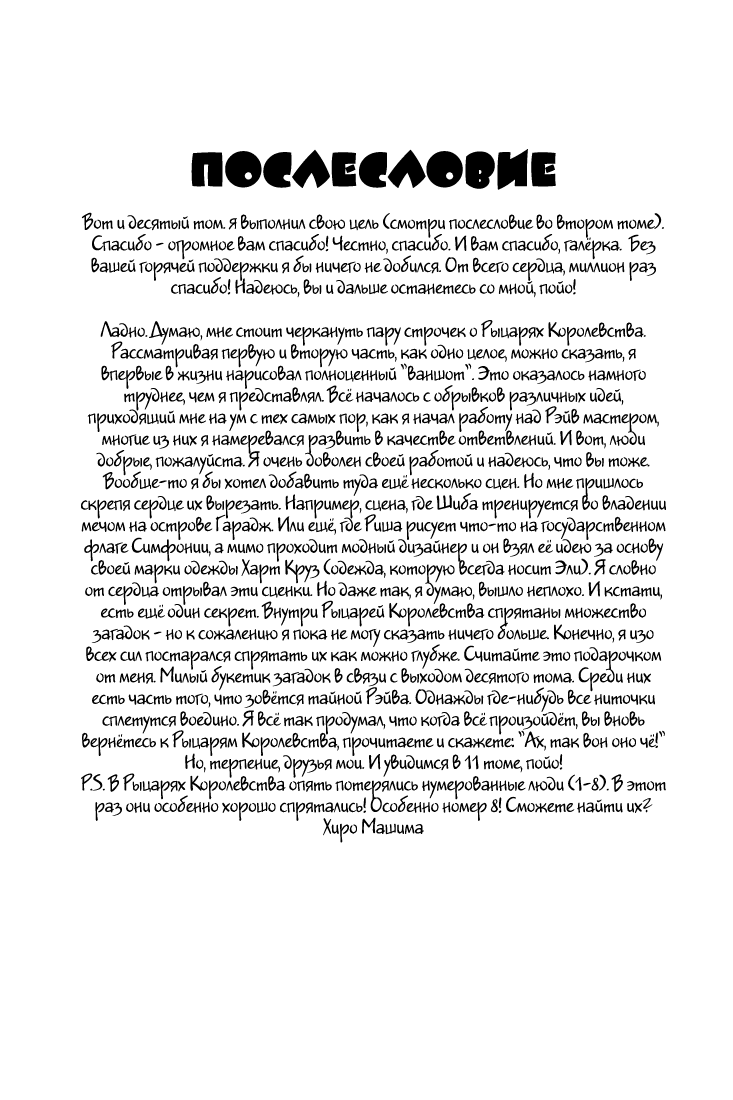 ПОСЛЕСЛОВИЕ
Вот и десятый том. Я выполнил свою цель (смотри послесловие во втором томе).
Спасибо - огромное вам спасибо! Честно, спасибо. И вам спасибо, галёрка. Без
вашей горячей поддержки я бы ничего не добился. От всего сердца, миллион раз
спасибо! Надеюсь, вы и дальше останетесь со мной, пойо!
Ладно. Думаю, мне стоит черкануть пару строчек о Рыцарях Королевства.
Рассматривая первую и вторую часть, как одно целое, можно сказать, я
впервые в жизни нарисовал полноценный "ваншот". Это оказалось намного
труднее, чем я представлял. Всё началось с обрывков различных идей,
приходящий мне на ум с тех самых пор, как я начал работу над Рэйв мастером,
многие из них я намеревался развить в качестве ответвлений. И вот, люди
добрые, пожалуйста. Я очень доволен своей работой и надеюсь, что вы тоже.
Вообще-то я бы хотел добавить туда ещё несколько сцен. Но мне пришлось
скрепя сердце их вырезать. Например, сцена, где Шиба тренируется во владении
мечом на острове Гарадж. Или ещё, где Риша рисует что-то на государственном
флаге Симфонии, а мимо проходит модный дизайнер и он взял её идею за основу
своей марки одежды Харт Круз (одежда, которую всегда носит Эли). Я словно
от сердца отрывал эти сценки. Но даже так, я думаю, вышло неплохо. И кстати,
есть ещё один секрет. Внутри Рыцарей Королевства спрятаны множество
загадок - но к сожалению я пока не могу сказать ничего больше. Конечно, я изо
всех сил постарался спрятать их как можно глубже. Считайте это подарочком
от меня. Милый букетик загадок в связи с выходом десятого тома. Среди них
есть часть того, что зовётся тайной Рэйва. Однажды где-нибудь все ниточки
сплетутся воедино. Я всё так продумал, что когда всё произойдёт, вы вновь
вернётесь к Рыцарям Королевства, прочитаете и скажете: "Ах, так вон оно чё!"
Но, терпение, друзья мои. И увидимся в 11 томе, пойо!
P.S. В Рыцарях Королевства опять потерялись нумерованные люди (1-8). В этот
раз они особенно хорошо спрятались! Особенно номер 8! Сможете найти их?
Хиро Машима